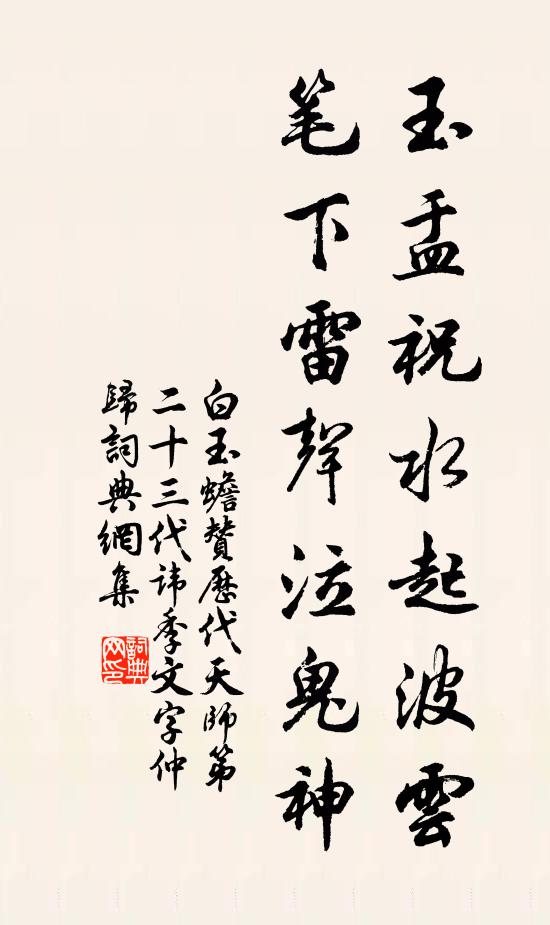 玉盂祝水起波雲
笔下雷聲泣鬼神
白玉蟾贊歷代天師第
二十三代諱季文字仲
歸詞典網集
詞典
网印